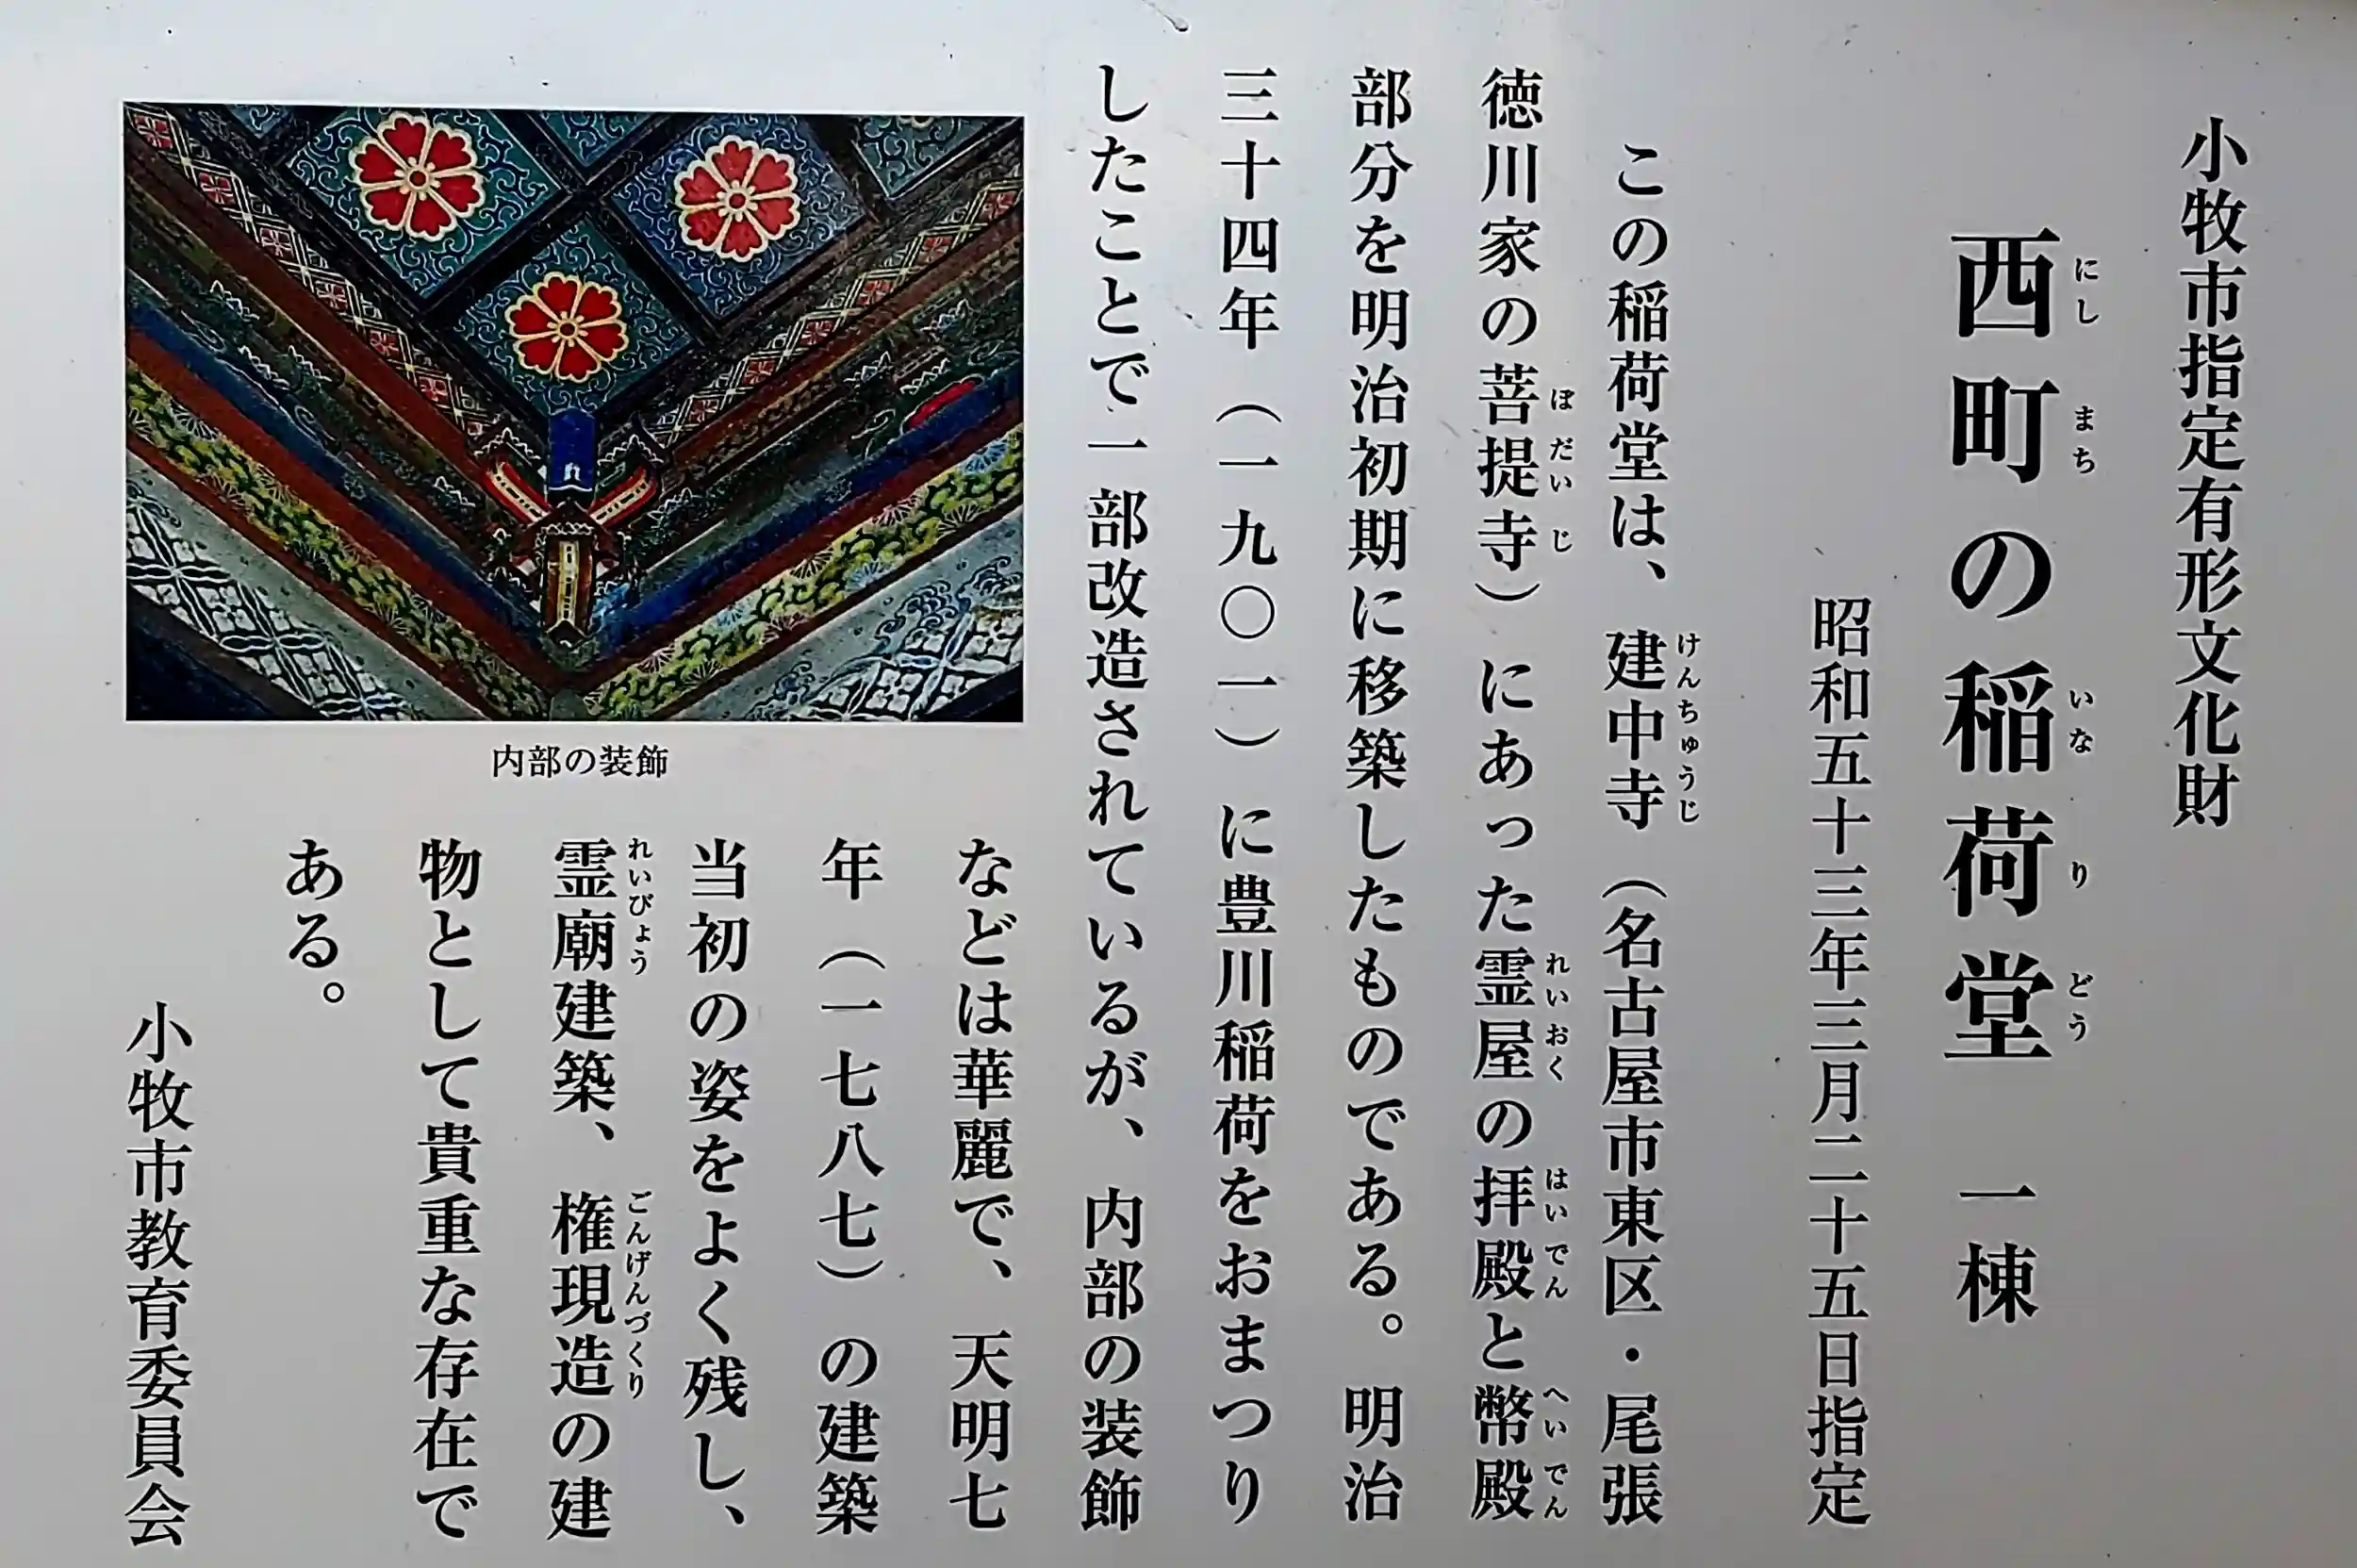 小牧市指定有形文化財
西町の稲荷堂 一棟
にしまち いなりどう
昭和五十三年三月二十五日指定
この稲荷堂は、建中寺（名古屋市東区・尾張
けんちゅうじ
徳川家の菩提寺）にあった霊屋の拝殿と幣殿
ぼだいじ れいおく はいでん へいでん
部分を明治初期に移築したものである。明治
三十四年（一九〇一）に豊川稲荷をおまつり
したことで一部改造されているが、内部の装飾
などは華麗で、天明七
年（一七八七）の建築
当初の姿をよく残し、
霊廟建築、権現造の建
れいびょう ごんげんづくり
物として貴重な存在で
ある。
小牧市教育委員会
内部の装飾